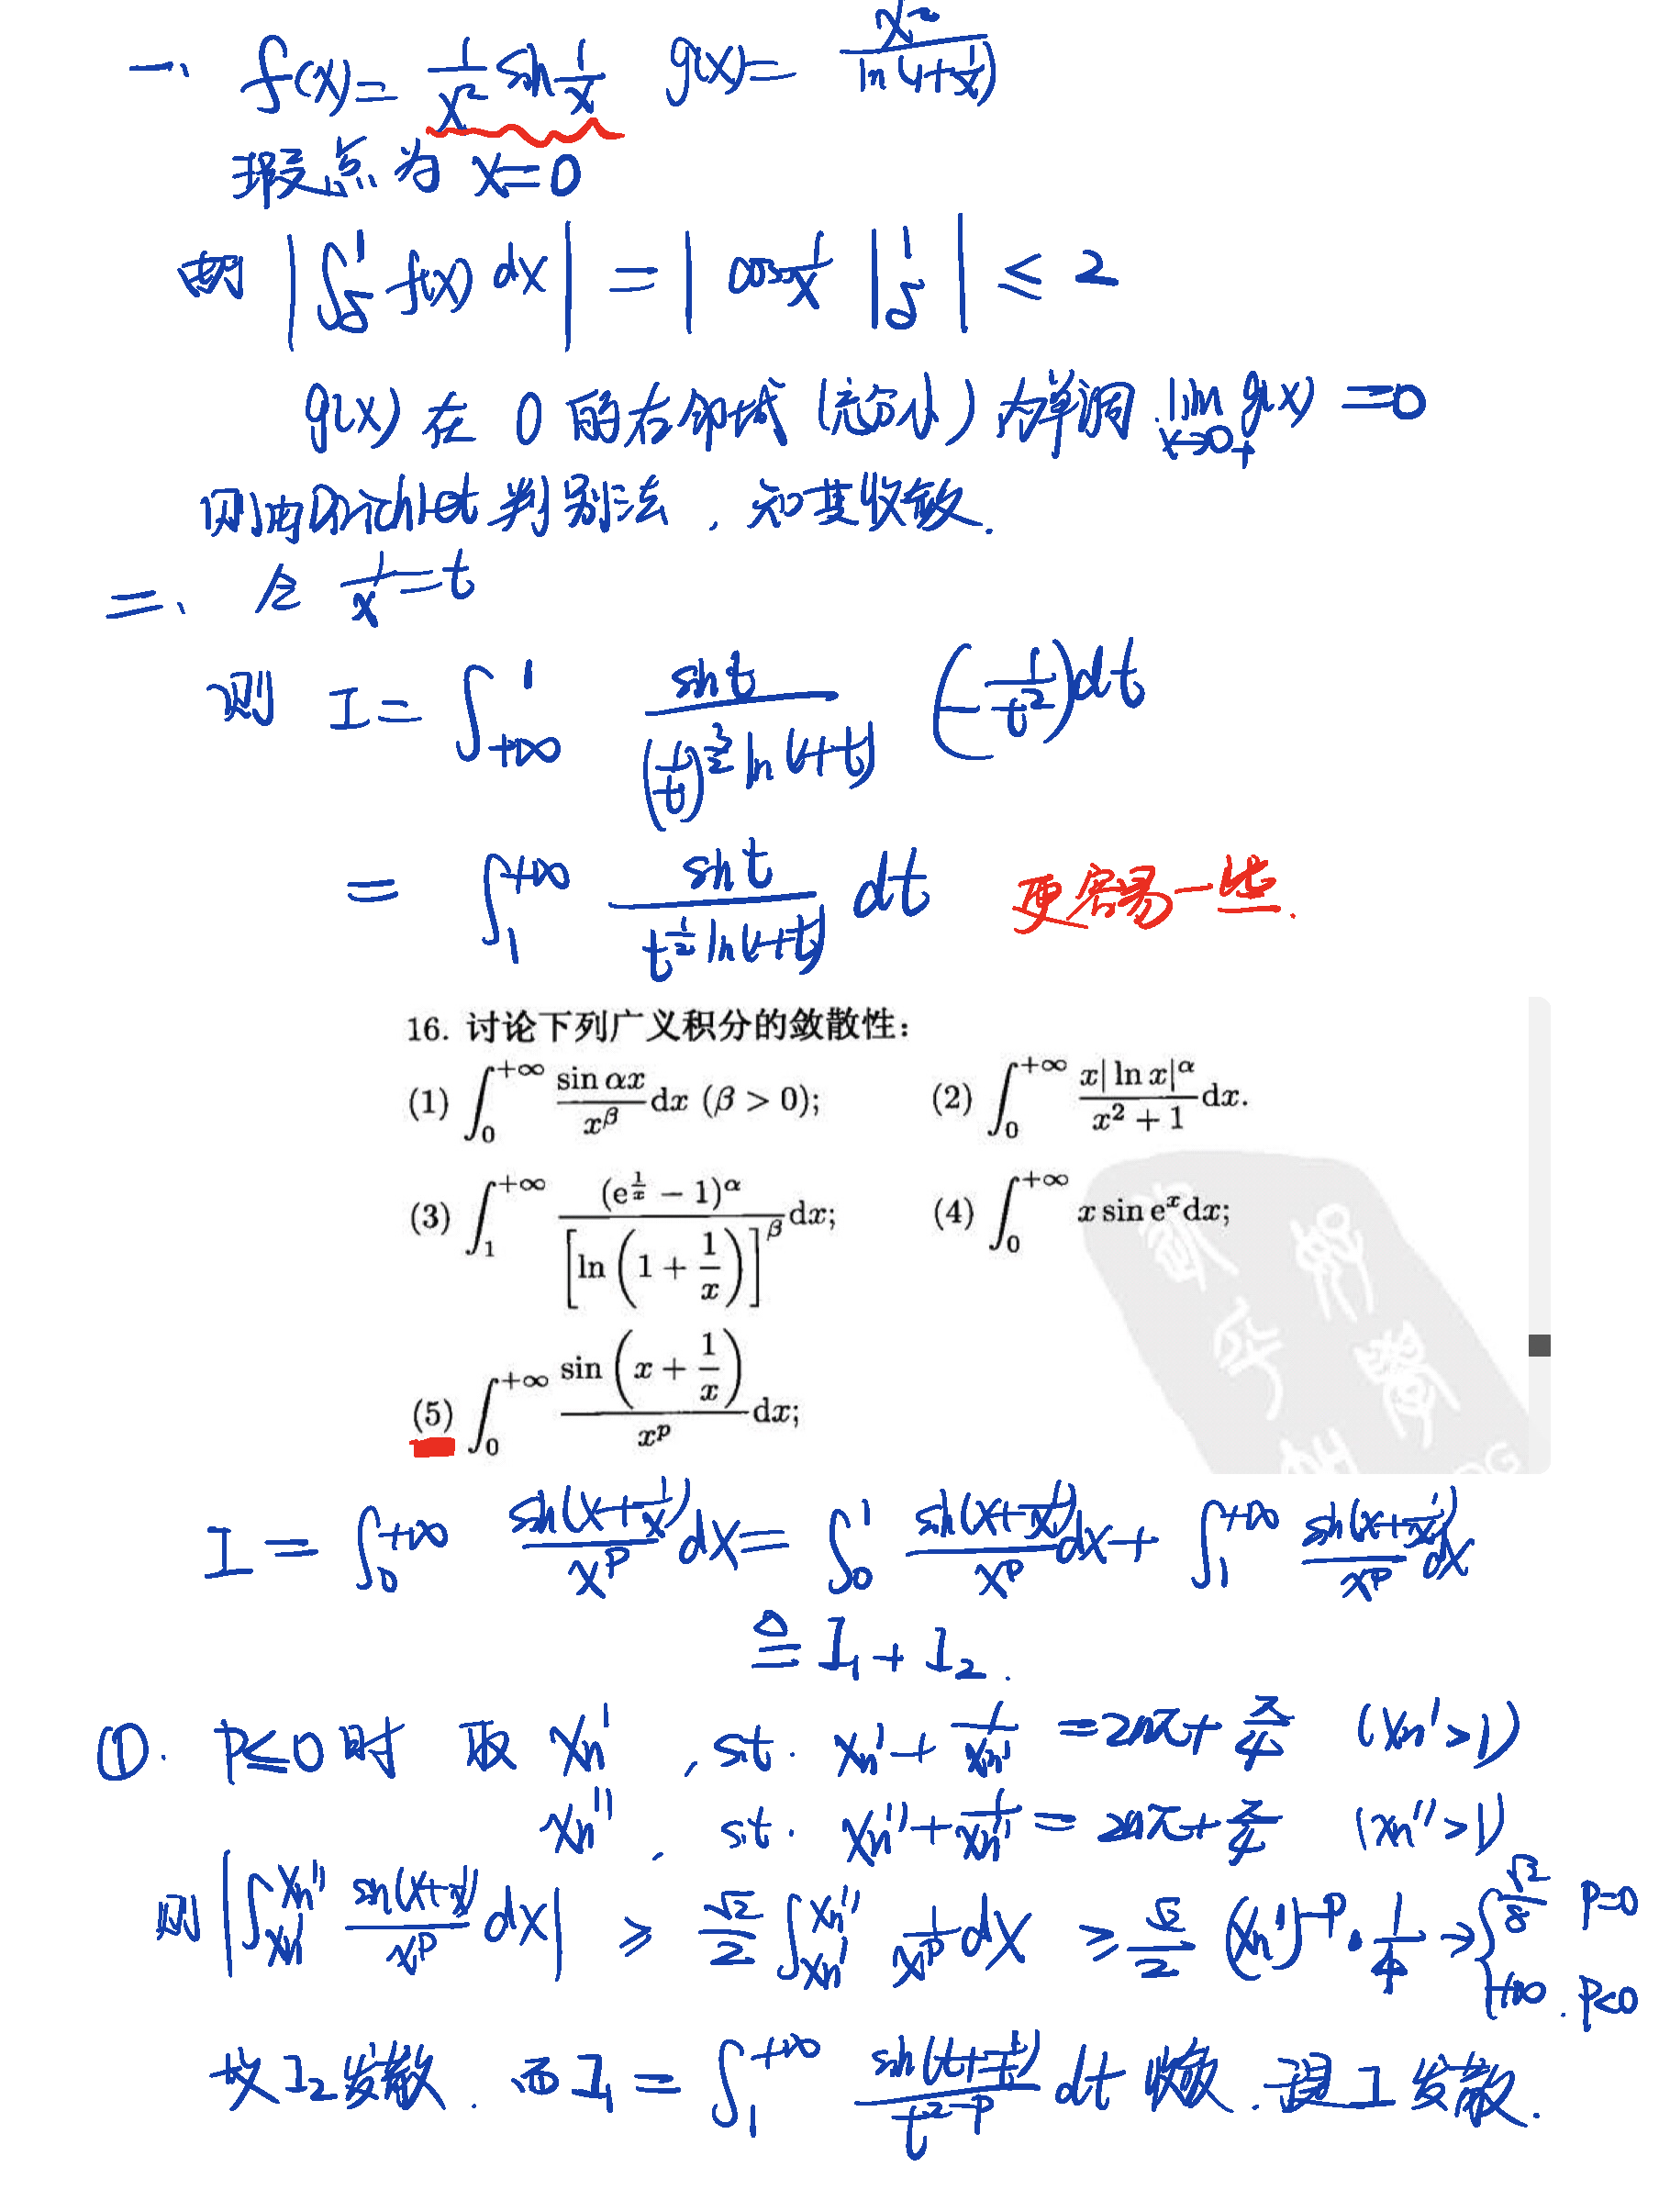 一、 f(x)= 1/x² sin 1/x g(x)= x^{1/2}/ln(1+1/x)
瑕点为 x=0
由于 |∫_δ^1 f(x) dx| = |cos 1/x |_δ^1| ≤ 2
g(x) 在 0 的右邻域 (充分小) 内单调. lim_{x→0+} g(x) =0
则由Dirichlet 判别法, 知其收敛.
二、 令 1/x=t
则 I= ∫_{+∞}^1 sin t/((1/t)^{3/2} ln(1+t)) (-1/t²)dt
= ∫_1^{+∞} sin t/(t^{1/2} ln(1+t)) dt 更容易一些.
16. 讨论下列广义积分的敛散性:
(1) ∫_0^{+∞} sin αx/x^β dx (β > 0); (2) ∫_0^{+∞} x|ln x|^α/(x² + 1) dx.
(3) ∫_1^{+∞} (e^{1/x} − 1)^α/[ln(1 + 1/x)]^β dx; (4) ∫_0^{+∞} x sin e^x dx;
(5) ∫_0^{+∞} sin(x + 1/x)/x^p dx;
I = ∫_0^{+∞} sin(x+1/x)/x^p dx= ∫_0^1 sin(x+1/x)/x^p dx+ ∫_1^{+∞} sin(x+1/x)/x^p dx
≜ I₁ + I₂.
①. P≤0 时 取 xn' , st. xn'+1/xn' =2nπ+π/4 (xn'>1)
xn'' , st. xn''+1/xn'' = 2nπ+π/4 (xn''>1)
则 |∫_{xn'}^{xn''} sin(x+1/x)/x^p dx| ≥ √2/2 ∫_{xn'}^{xn''} 1/x^p dx ≥ √2/2 (xn')^{-p}·1/4 → { √2/8 P=0
+∞. P<0
故 I₂ 发散. 而 I₁ = ∫_1^{+∞} sin(t+1/t)/t^{2-p} dt 收敛. I 发散.